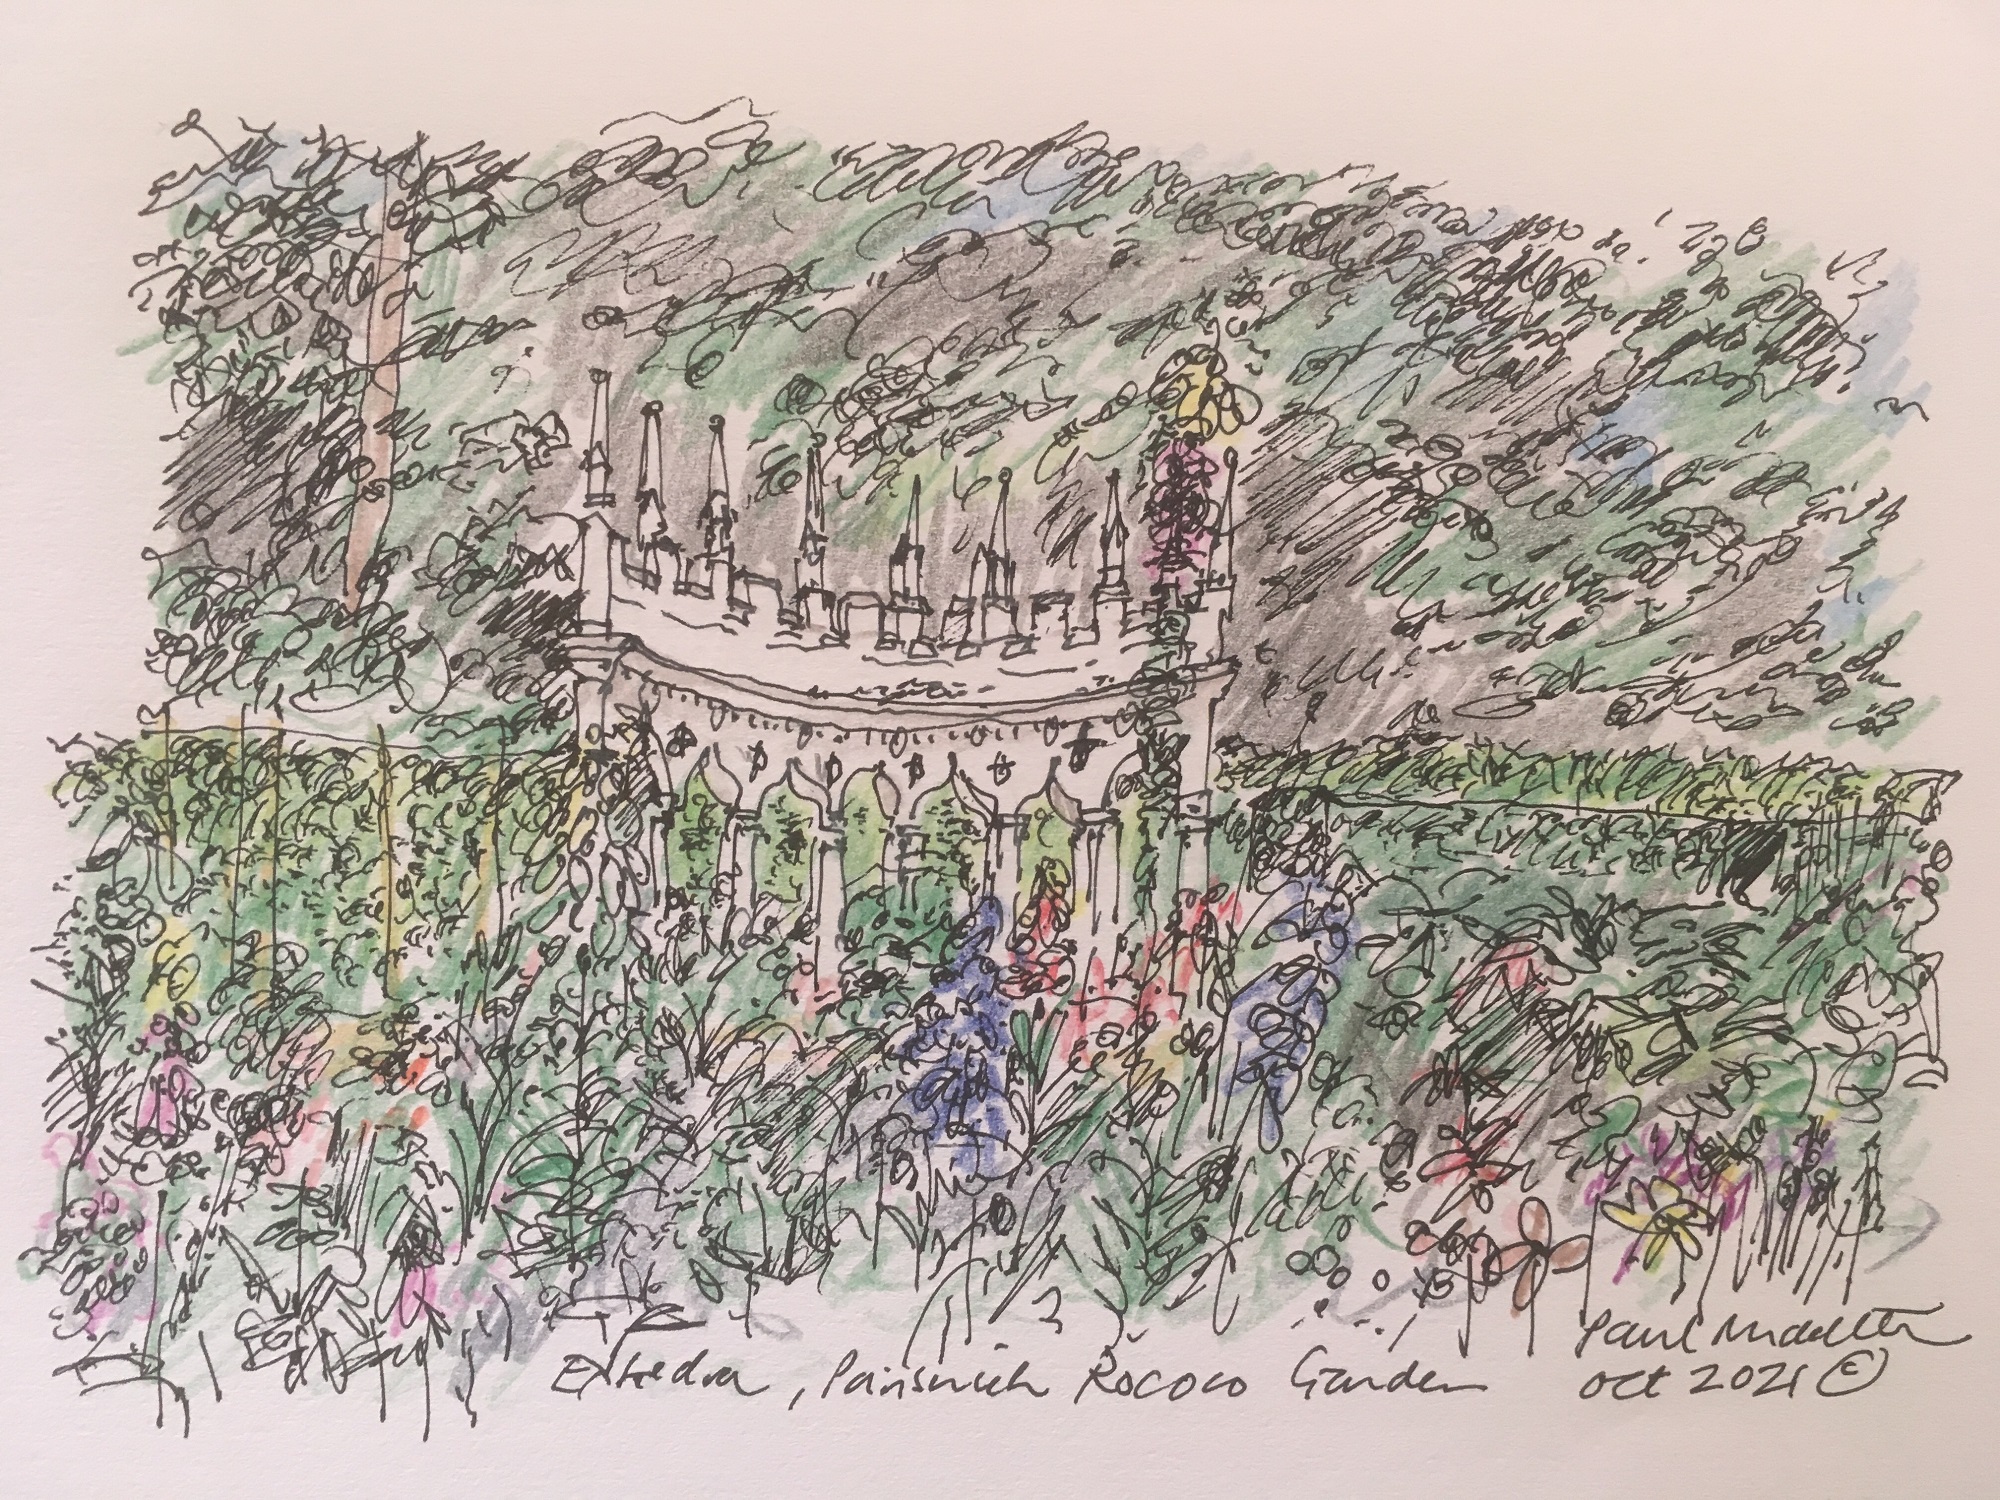 Exhedra, Painswick Rococo Garden
Paul Middleton
Oct 2021 ©